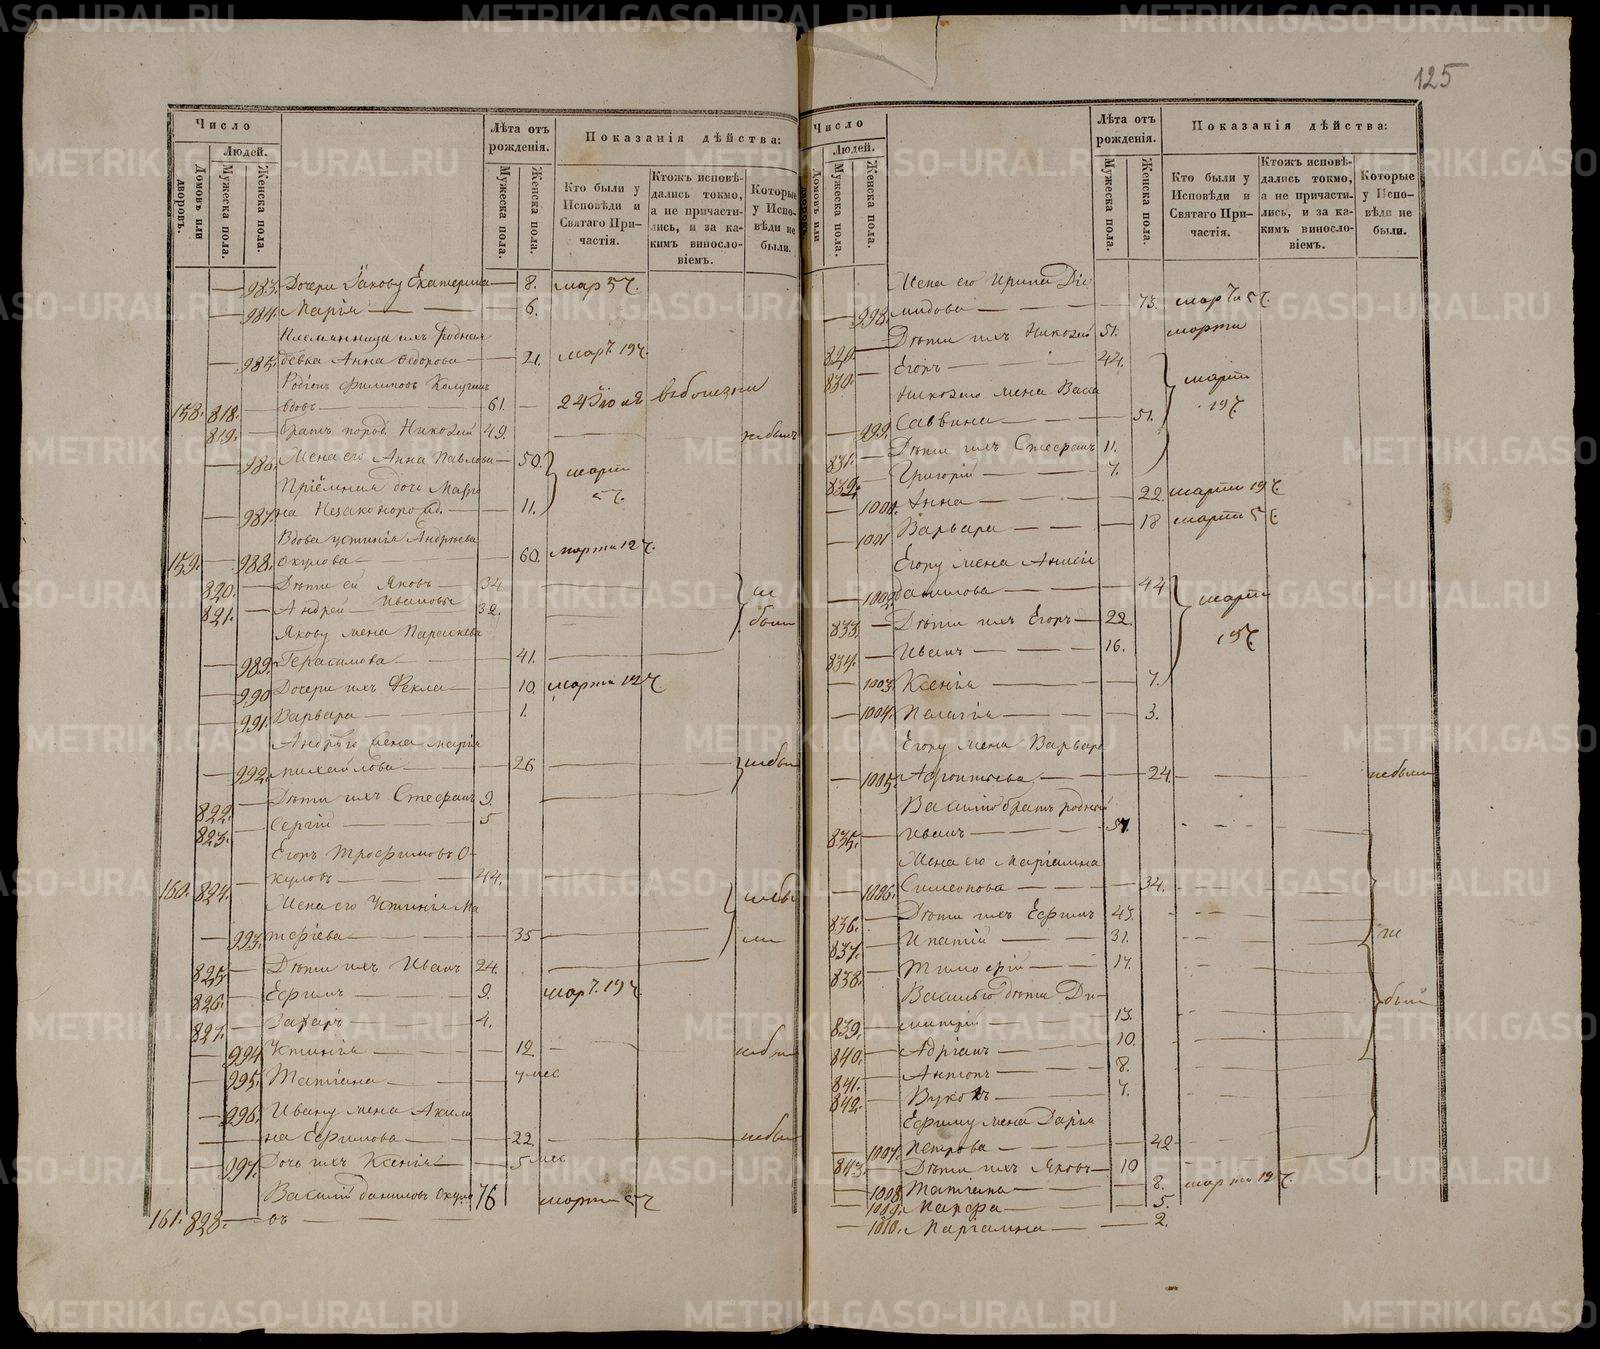 125
Число
Людей.
Домовъ или дворовъ.
Мужеска пола.
Женска пола.
Лѣта отъ рожденія.
Мужеска пола.
Женска пола.
Показанія дѣйства:
Кто были у Исповѣди и Святаго Причастія.
Ктожъ исповѣдались токмо, а не причастились, и за какимъ винословіемъ.
Которые у Исповѣди не были.
983. Дочери Іакову Екатерина 8. мар 5 ч.
984. Марія 6.
Племянница ихъ родная
985. девка Анна Ѳедорова 21. мар. 19 ч.
Родіонъ Филиповъ
158. 818. 61. 24 Іюля
819. братъ Николай 49. не былъ
986. Жена его Анна Павлова 50. марта
Пріёмная дочь
987. 11. 5 ч.
Вдова Устинія Андреева
159. 988. Окулова 60. марта 12 ч.
820. Дѣти ея Яковъ 34 не
821. Андрей Ивановы 32. были
Якову жена Параскева
989. Герасимова 41.
990 Дочери ихъ Фекла 10. марта 12 ч
991. Варвара 1.
Андрею жена Марія
992. Михайлова 26
822. Дѣти ихъ Стефанъ 9.
823. Сергій 5
Егоръ Трофимовъ О-
160. 824. куловъ 44.
Жена его Устинія Ма
993. твеѣва 35
825 Дѣти ихъ Иванъ 24.
826. Ефимъ 9. мар. 19 ч
827. Захаръ 4.
994. Устинія 12
995. Татіана 7 мес.
996. Ивану жена Акили
на Ефимова 22
997. Дочь ихъ Ксенія 5 мес
Василій Даниловъ Окул 76 марта 5 ч
161. 828. овъ
Число
Людей.
Домовъ или дворовъ.
Мужеска пола.
Женска пола.
Лѣта отъ рожденія.
Мужеска пола.
Женска пола.
Показанія дѣйства:
Кто были у Исповѣди и Святаго Причастія.
Ктожъ исповѣдались токмо, а не причастились, и за какимъ винословіемъ.
Которые у Исповѣди не были.
Жена его Ирина Діо
998. мидова 73. марта 5 ч.
829. Дѣти ихъ Николай 51. марта
830. Егоръ 44. марта
Николаю жена Васса
999. Саввина 51. 19 ч.
831. Дѣти ихъ Стефанъ 11.
832. Григорій 7.
1000. Анна 22. марта 19 ч.
1001 Варвара 18 марта 5 ч.
Егору жена Анисія
1002. Данилова 44 марта
833. Дѣти ихъ Егоръ 22.
834. Иванъ 16. 19 ч.
1003. Ксенія 7.
1004. Пелагія 3.
Егору жена Варвара
1005. 24. не были
Василію братъ родный
835. Иванъ 57.
Жена его Маріамна
1006. Симеонова 34.
836. Дѣти ихъ Ефимъ 43.
837. Ипатій 31. не
838. Тимофій 17.
Василью дѣти Ди-
839. митрій 13. были
840. Адріанъ 10.
841. Антонъ 8.
842. Вуколъ 7.
Ефиму жена Дарія
1007. Петрова 42
843. Дѣти ихъ Яковъ 10
1008. Татіана 8. марта 12 ч.
1009. Мавра 5.
1010. Маріамна 2.
METRIKI.GASO-URAL.RU